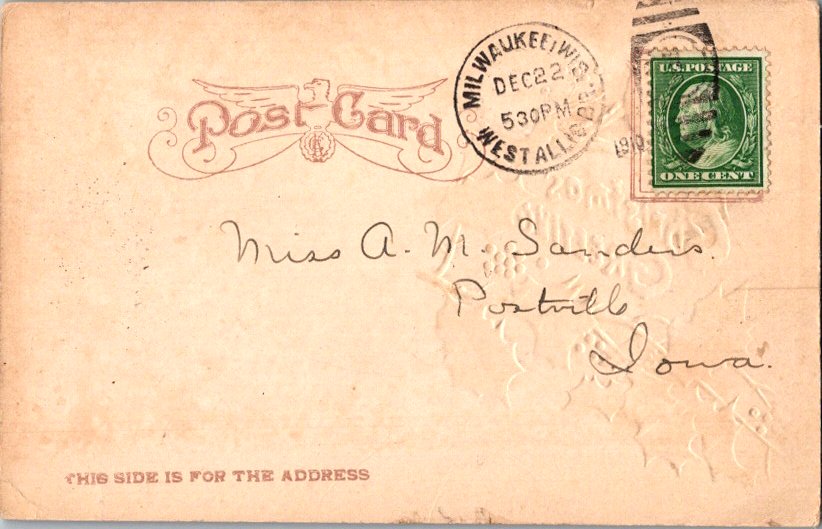 Post Card
MILWAUKEE, WIS.
DEC 22
5 30 PM
WEST ALLIS BR.
1910
U.S. POSTAGE
ONE CENT
Christmas
Miss A. M. Sanders.
Postville
Iowa.
THIS SIDE IS FOR THE ADDRESS